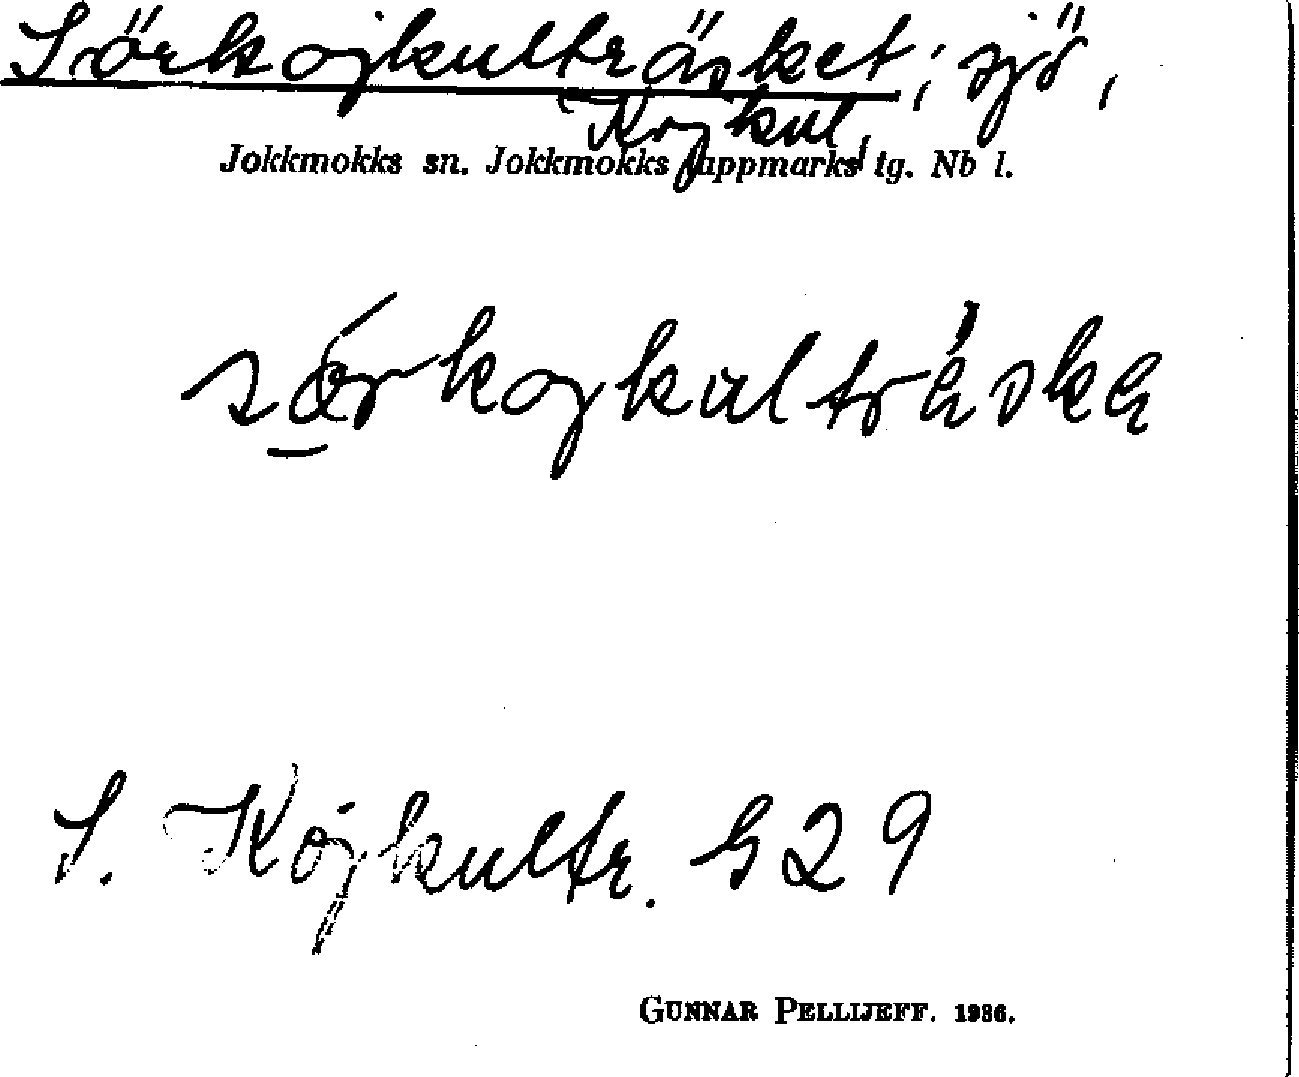 Sörkojkulträsket; sjö,
Kojkul,
Jokkmokks sn. Jokkmokks lappmarks tg. Nb l.
sǿrkojkultrǻska
S. Kojkultr. G29
GUNNAR PELLIJEFF. 1936.